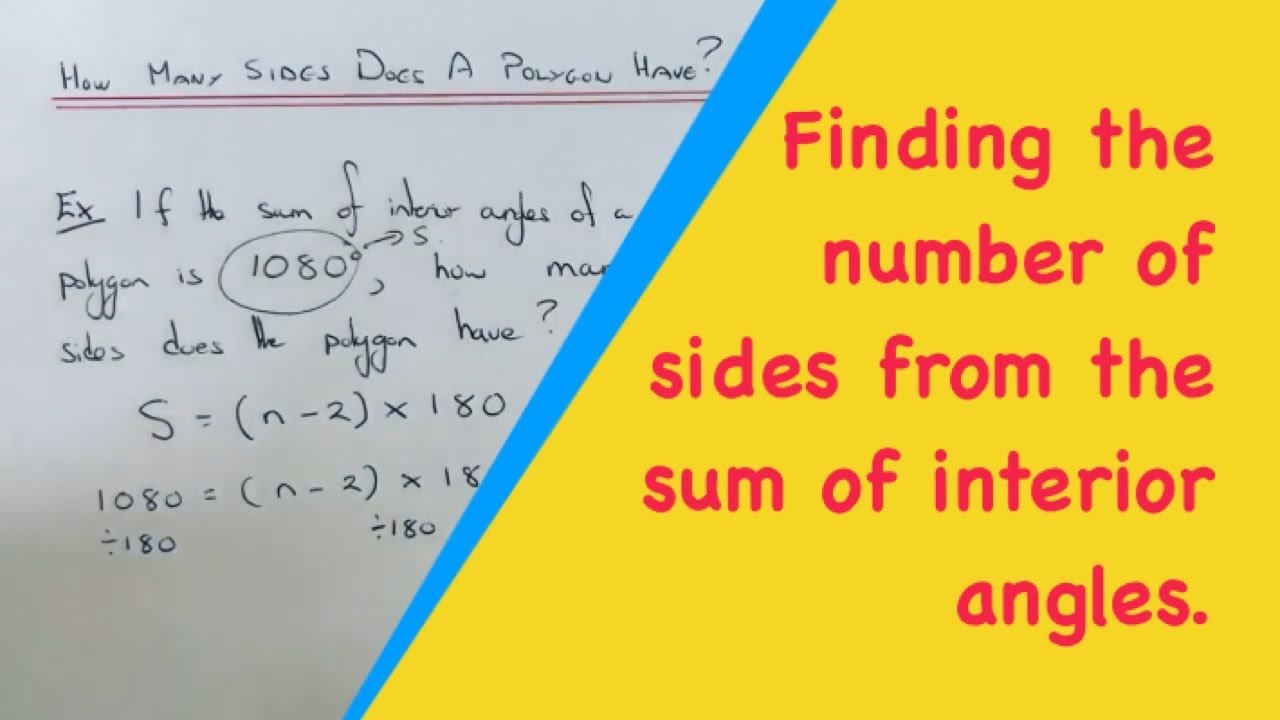 How Many Sides Does A Polygon Have?
Ex If the sum of interior angles of a
→ S.
polygon is 1080°, how mar
sides does the polygon have?
S = (n - 2) × 180
1080 = (n - 2) × 18
÷180 ÷180
Finding the
number of
sides from the
sum of interior
angles.